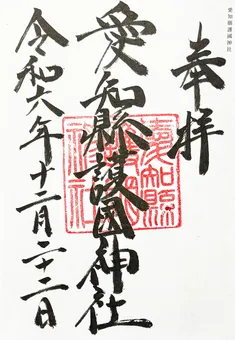 愛知縣護國神社
奉拝
愛知縣護國神社
愛知縣護國神社
令和六年十二月二十二日